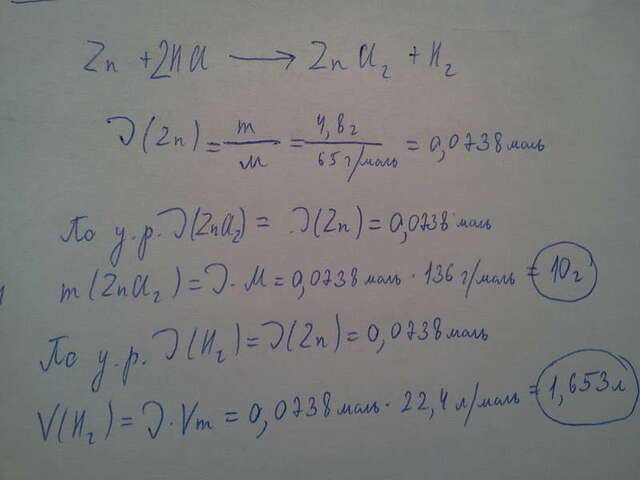 Zn + 2HCl → ZnCl₂ + H₂
ν(Zn) = m/M = 4,8г/65г/моль = 0,0738 моль
По ур. ν(ZnCl₂) = ν(Zn) = 0,0738 моль
m(ZnCl₂) = ν·M = 0,0738 моль · 136 г/моль = 10г
По ур. ν(H₂) = ν(Zn) = 0,0738 моль
V(H₂) = ν·Vm = 0,0738 моль · 22,4 л/моль = 1,653л